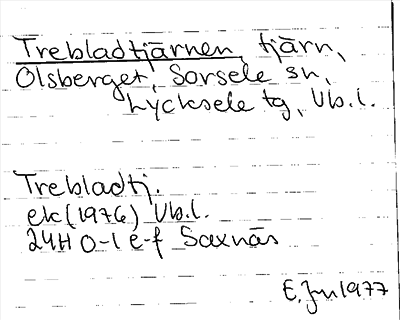 Trebladtjärnen, tjärn,
Olsberget, Sorsele sn,
Lycksele tg, Vb.l.
Trebladtj.
ek (1976) Vb.l.
24H 0-1 e-f Saxnäs
E. Ju 1977